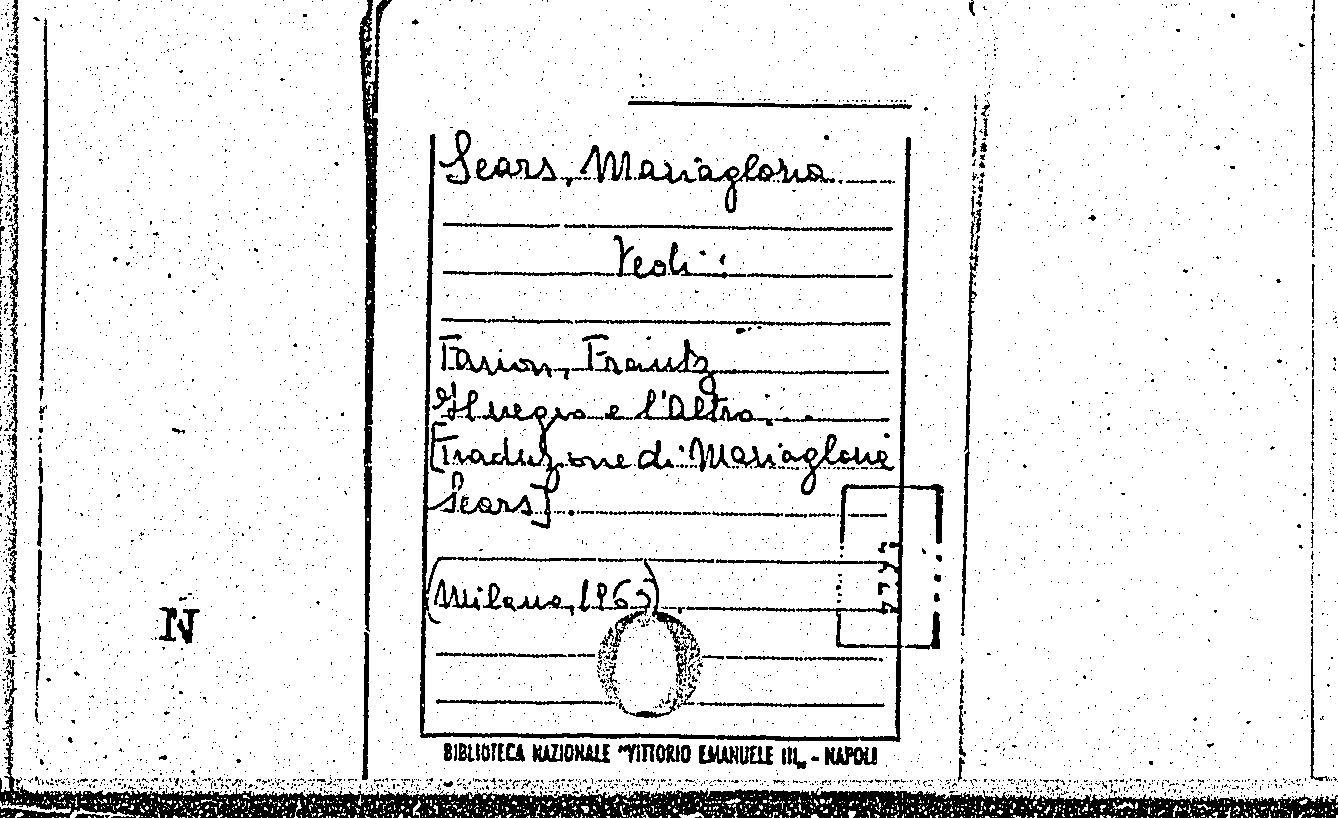 Sears, Mariagloria
Vedi:
Fanon, Frantz
Il negro e l'Altro.
[Traduzione di Mariagloria
Sears].
(Milano, 1965)
N
BIBLIOTECA NAZIONALE "VITTORIO EMANUELE III„ - NAPOLI